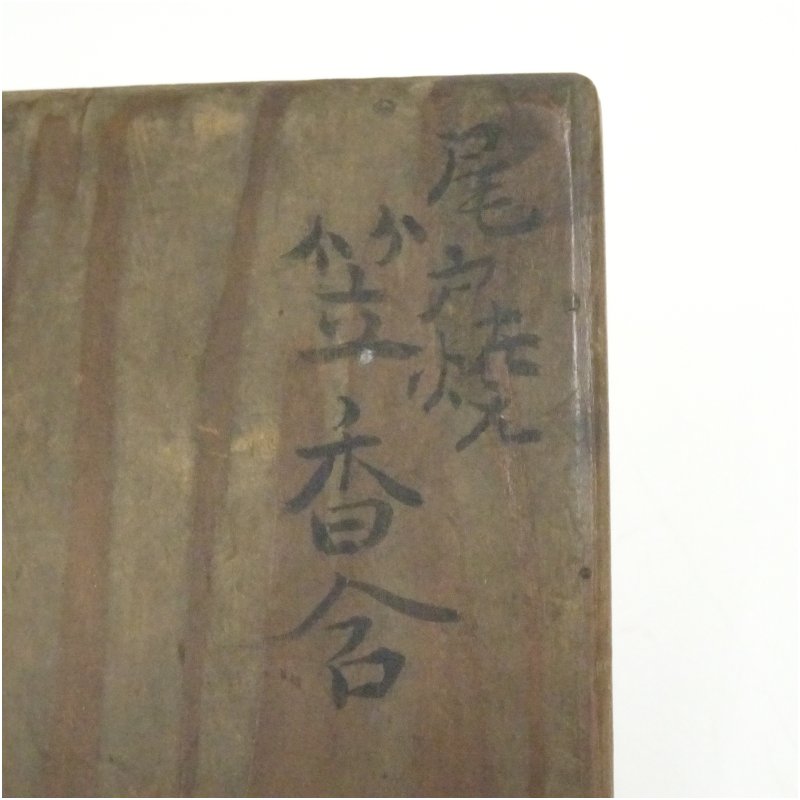 尾戸焼
笠香合